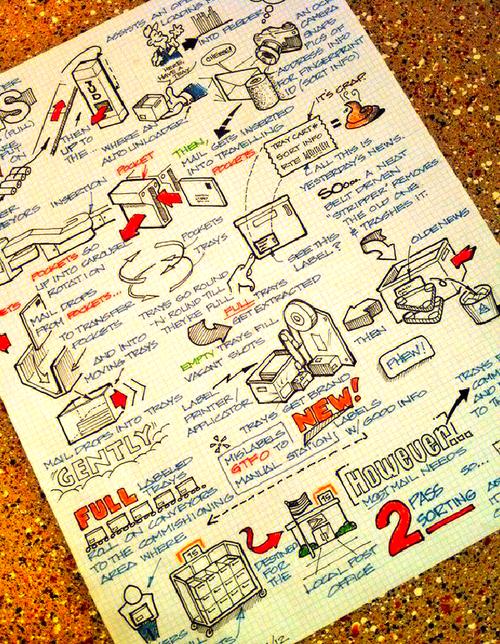 ASSISTS AN OP
LOADING
INTO FEEDER
AN OCR
CAMERA
SNAPS
PICS OF
ADDRESS INFO
FOR FINGERPRINT
ID (SORT INFO)
CLICK!
S
(FULL)
ARE
ON
THEN
UP TO
THE...
WHERE AN
AUTO UNLOADER
THEN,
MAIL GETS INSERTED
INTO TRAVELLING
POCKETS
POCKET
IT'S CRAP
=
TRAY CART#
SORT INFO
ETC
ALL THIS IS
YESTERDAY'S NEWS.
SOOOO... A NEAT
BELT DRIVEN
"STRIPPER" REMOVES
THE OLD ONE
& TRASHES IT.
INSERTION
EYORS
POCKETS GO
UP INTO CAROUSEL
ROTATION
POCKETS
TRAYS
SEE THIS
LABEL?
OLD NEWS
ETS
MAIL DROPS
FROM POCKETS...
TO TRANSFER
POCKETS
AND INTO
MOVING TRAYS
TRAYS GO ROUND
'N' ROUND TILL
THEY'RE FULL
FULL TRAYS
GET EXTRACTED
EMPTY TRAYS FILL
VACANT SLOTS
THEN
PHEW!
LABEL
PRINTER/
APPLICATOR
TRAYS GET BRAND
NEW!
LABELS
W/ GOOD INFO
MAIL DROPS INTO TRAYS
"GENTLY"
* MISLABELS
GTFO TO
MANUAL STATION
TRAYS
COMM
AND
TO TH
However!....
MOST MAIL NEEDS
2 PASS
SORTING
SO...
FULL LABELED
TRAYS
ROLL ON CONVEYORS
TO THE COMMISHIONING
AREA WHERE
DESTINED
FOR
THE
LOCAL POST
OFFICE